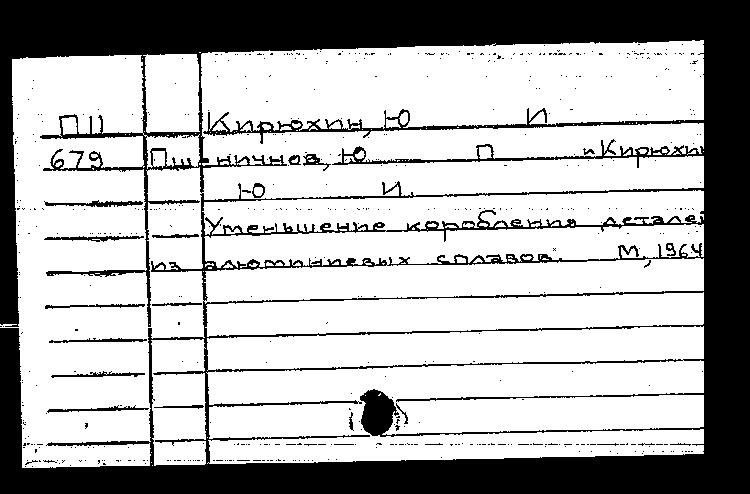 П11 Кирюхин, Ю И
679 Пшеничнов, Ю П и Кирюхин
Ю И.
Уменьшение коробления деталей
из алюминиевых сплавов. М, 1964